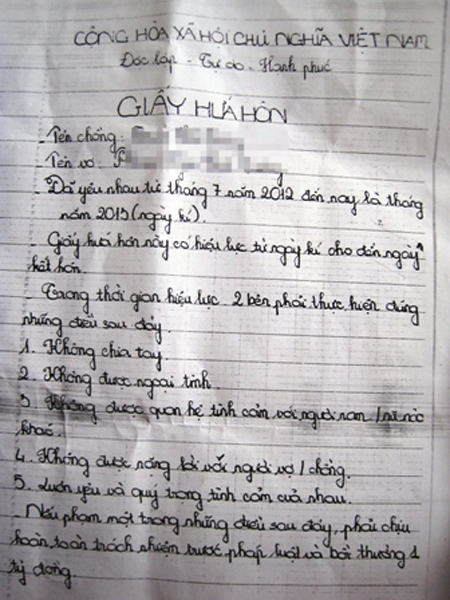 CỘNG HÒA XÃ HỘI CHỦ NGHĨA VIỆT NAM
Độc lập - Tự do - Hạnh phúc
GIẤY HỨA HÔN
- Tên chồng:
- Tên vợ:
- Đã yêu nhau từ tháng 7 năm 2012 đến nay là tháng
năm 2013 (ngày kí).
- Giấy hứa hôn này có hiệu lực từ ngày kí cho đến ngày
kết hôn.
- Trong thời gian hiệu lực 2 bên phải thực hiện đúng
những điều sau đây.
1. Không chia tay.
2. Không được ngoại tình.
3. Không được quan hệ tình cảm với người nam / nữ nào
khác.
4. Không được nặng lời với người vợ / chồng.
5. Luôn yêu và quý trọng tình cảm của nhau.
- Nếu phạm một trong những điều sau đây, phải chịu
hoàn toàn trách nhiệm trước pháp luật và bồi thường 1
tỷ đồng.